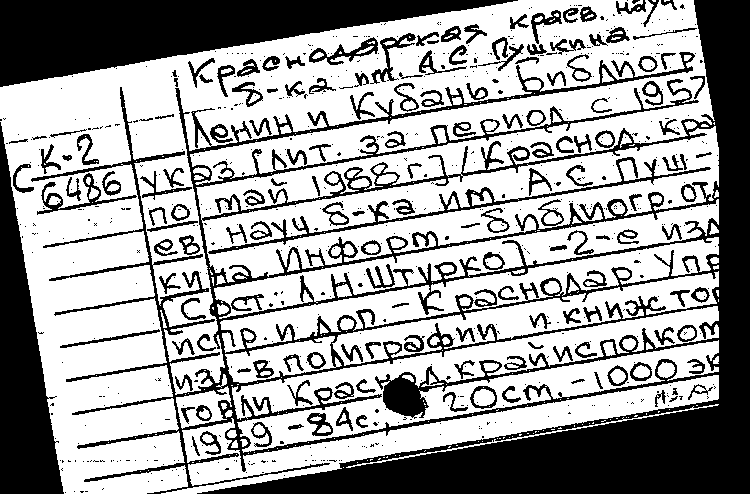 Краснодарская краев. науч.
б-ка им. А.С. Пушкина.
Ленин и Кубань: Библиогр.
указ. [лит. за период с 1957
по май 1988 г.] / Краснод. кра
ев. науч. б-ка им. А.С. Пуш-
кина. Информ.-библиогр. отд
[Сост.: Л.Н. Штурко]. -2-е изд
испр. и доп. - Краснодар: Упр
изд-в, полиграфии и книж. тор
говли Краснод. крайисполком
1989. - 84с.; 20 см. - 1000 эк
С К-2
6486